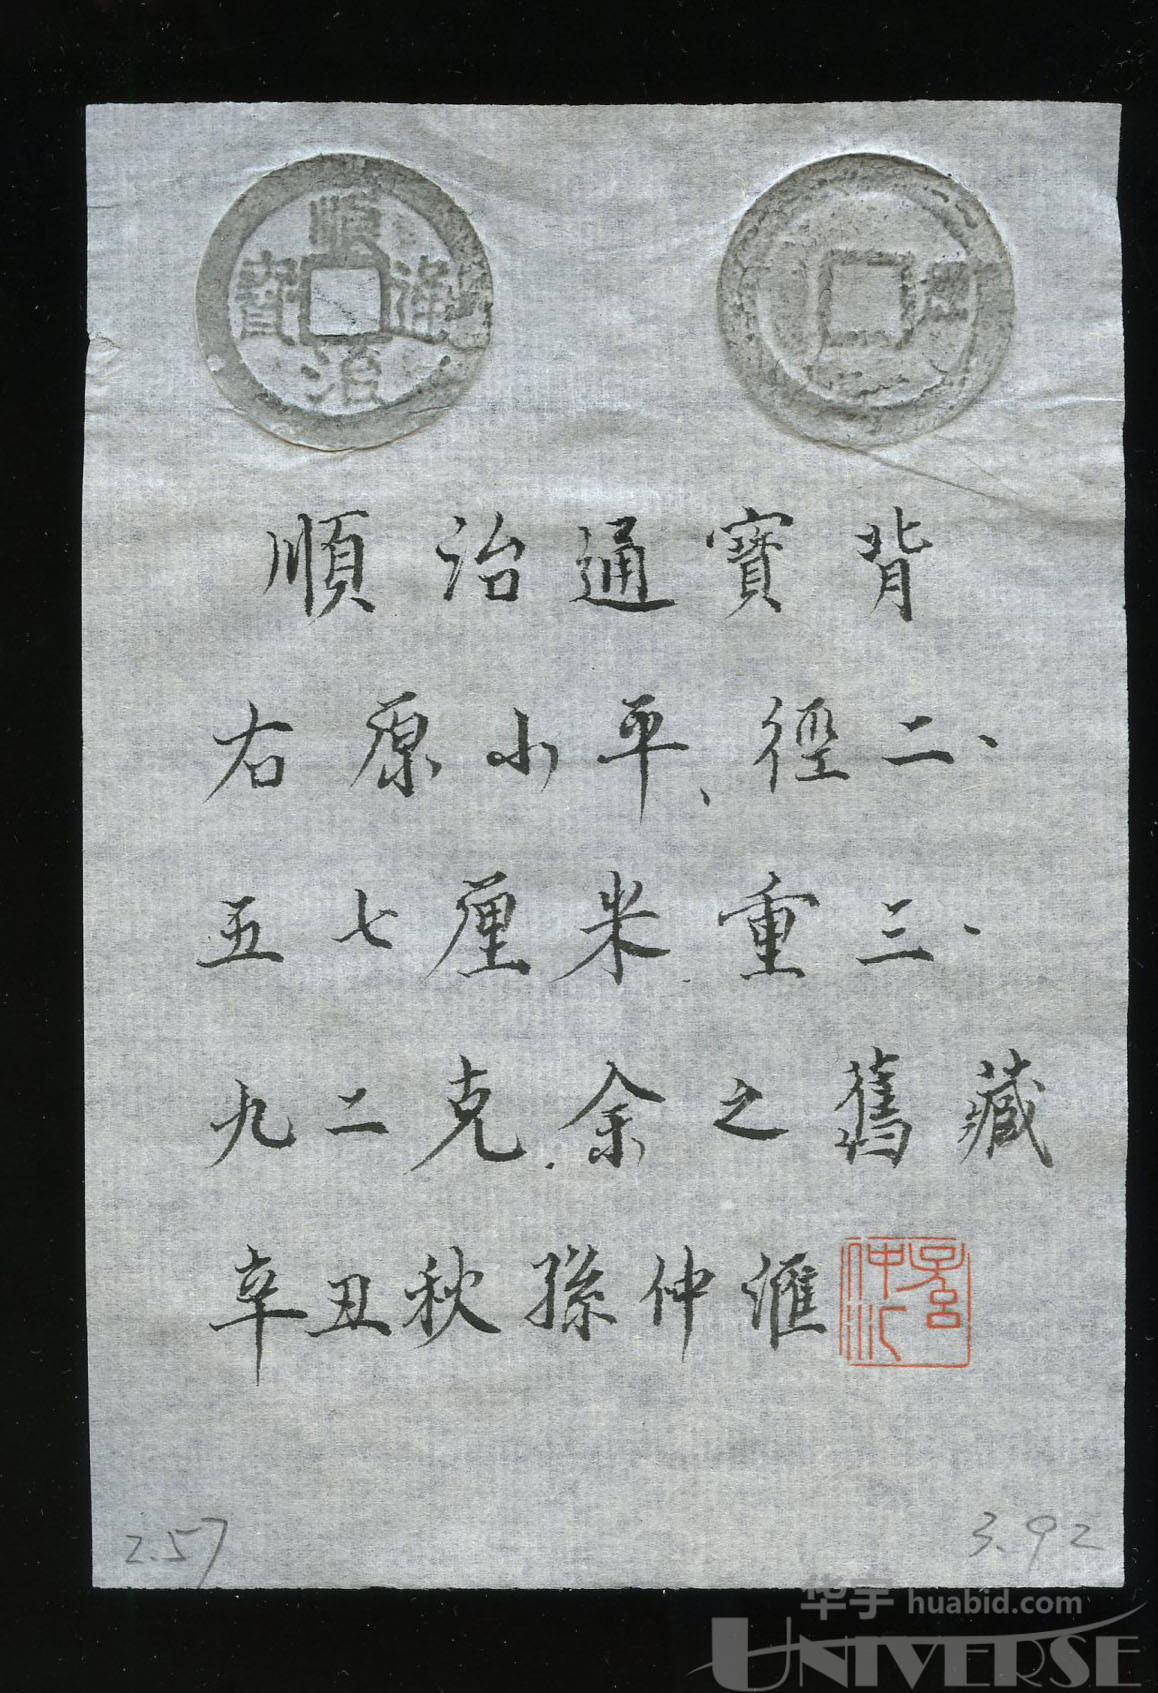 順治通寶
順治通寶背
右原小平、徑二、
五七厘米.重三、
九二克.余之舊藏
辛丑秋孫仲滙
2.57
3.92
华宇 huabid.com
UNIVERSE